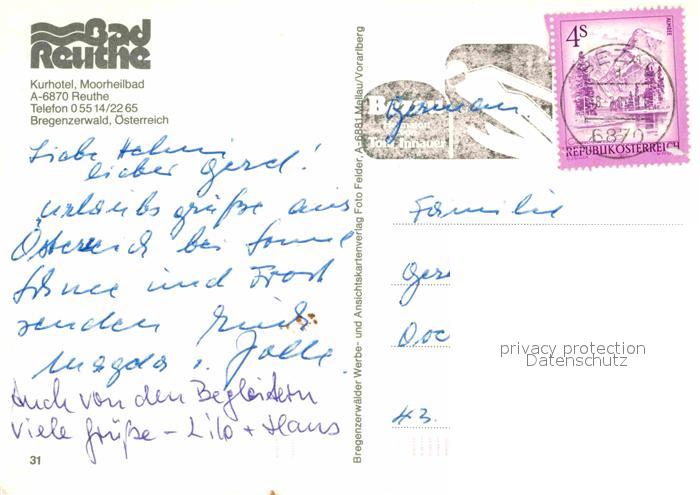 Bad
Reuthe
Kurhotel, Moorheilbad
A-6870 Reuthe
Telefon 0 55 14/22 65
Bregenzerwald, Österreich
Liebe
lieber Gerd!
Urlaubsgrüße aus
Österreich bei Sonne
Schnee und Frost
senden Euch
Magda u.
Auch von den Begleitern
viele Grüße - Lilo + Hans
31
Bregenzerwälder Werbe- und Ansichtskartenverlag Foto Felder, A-6881 Mellau/Vorarlberg
Toni Innauer
4S
ALMSEE
6870
REPUBLIK ÖSTERREICH
German
Familie
Ger
Doc
43
privacy protection
Datenschutz